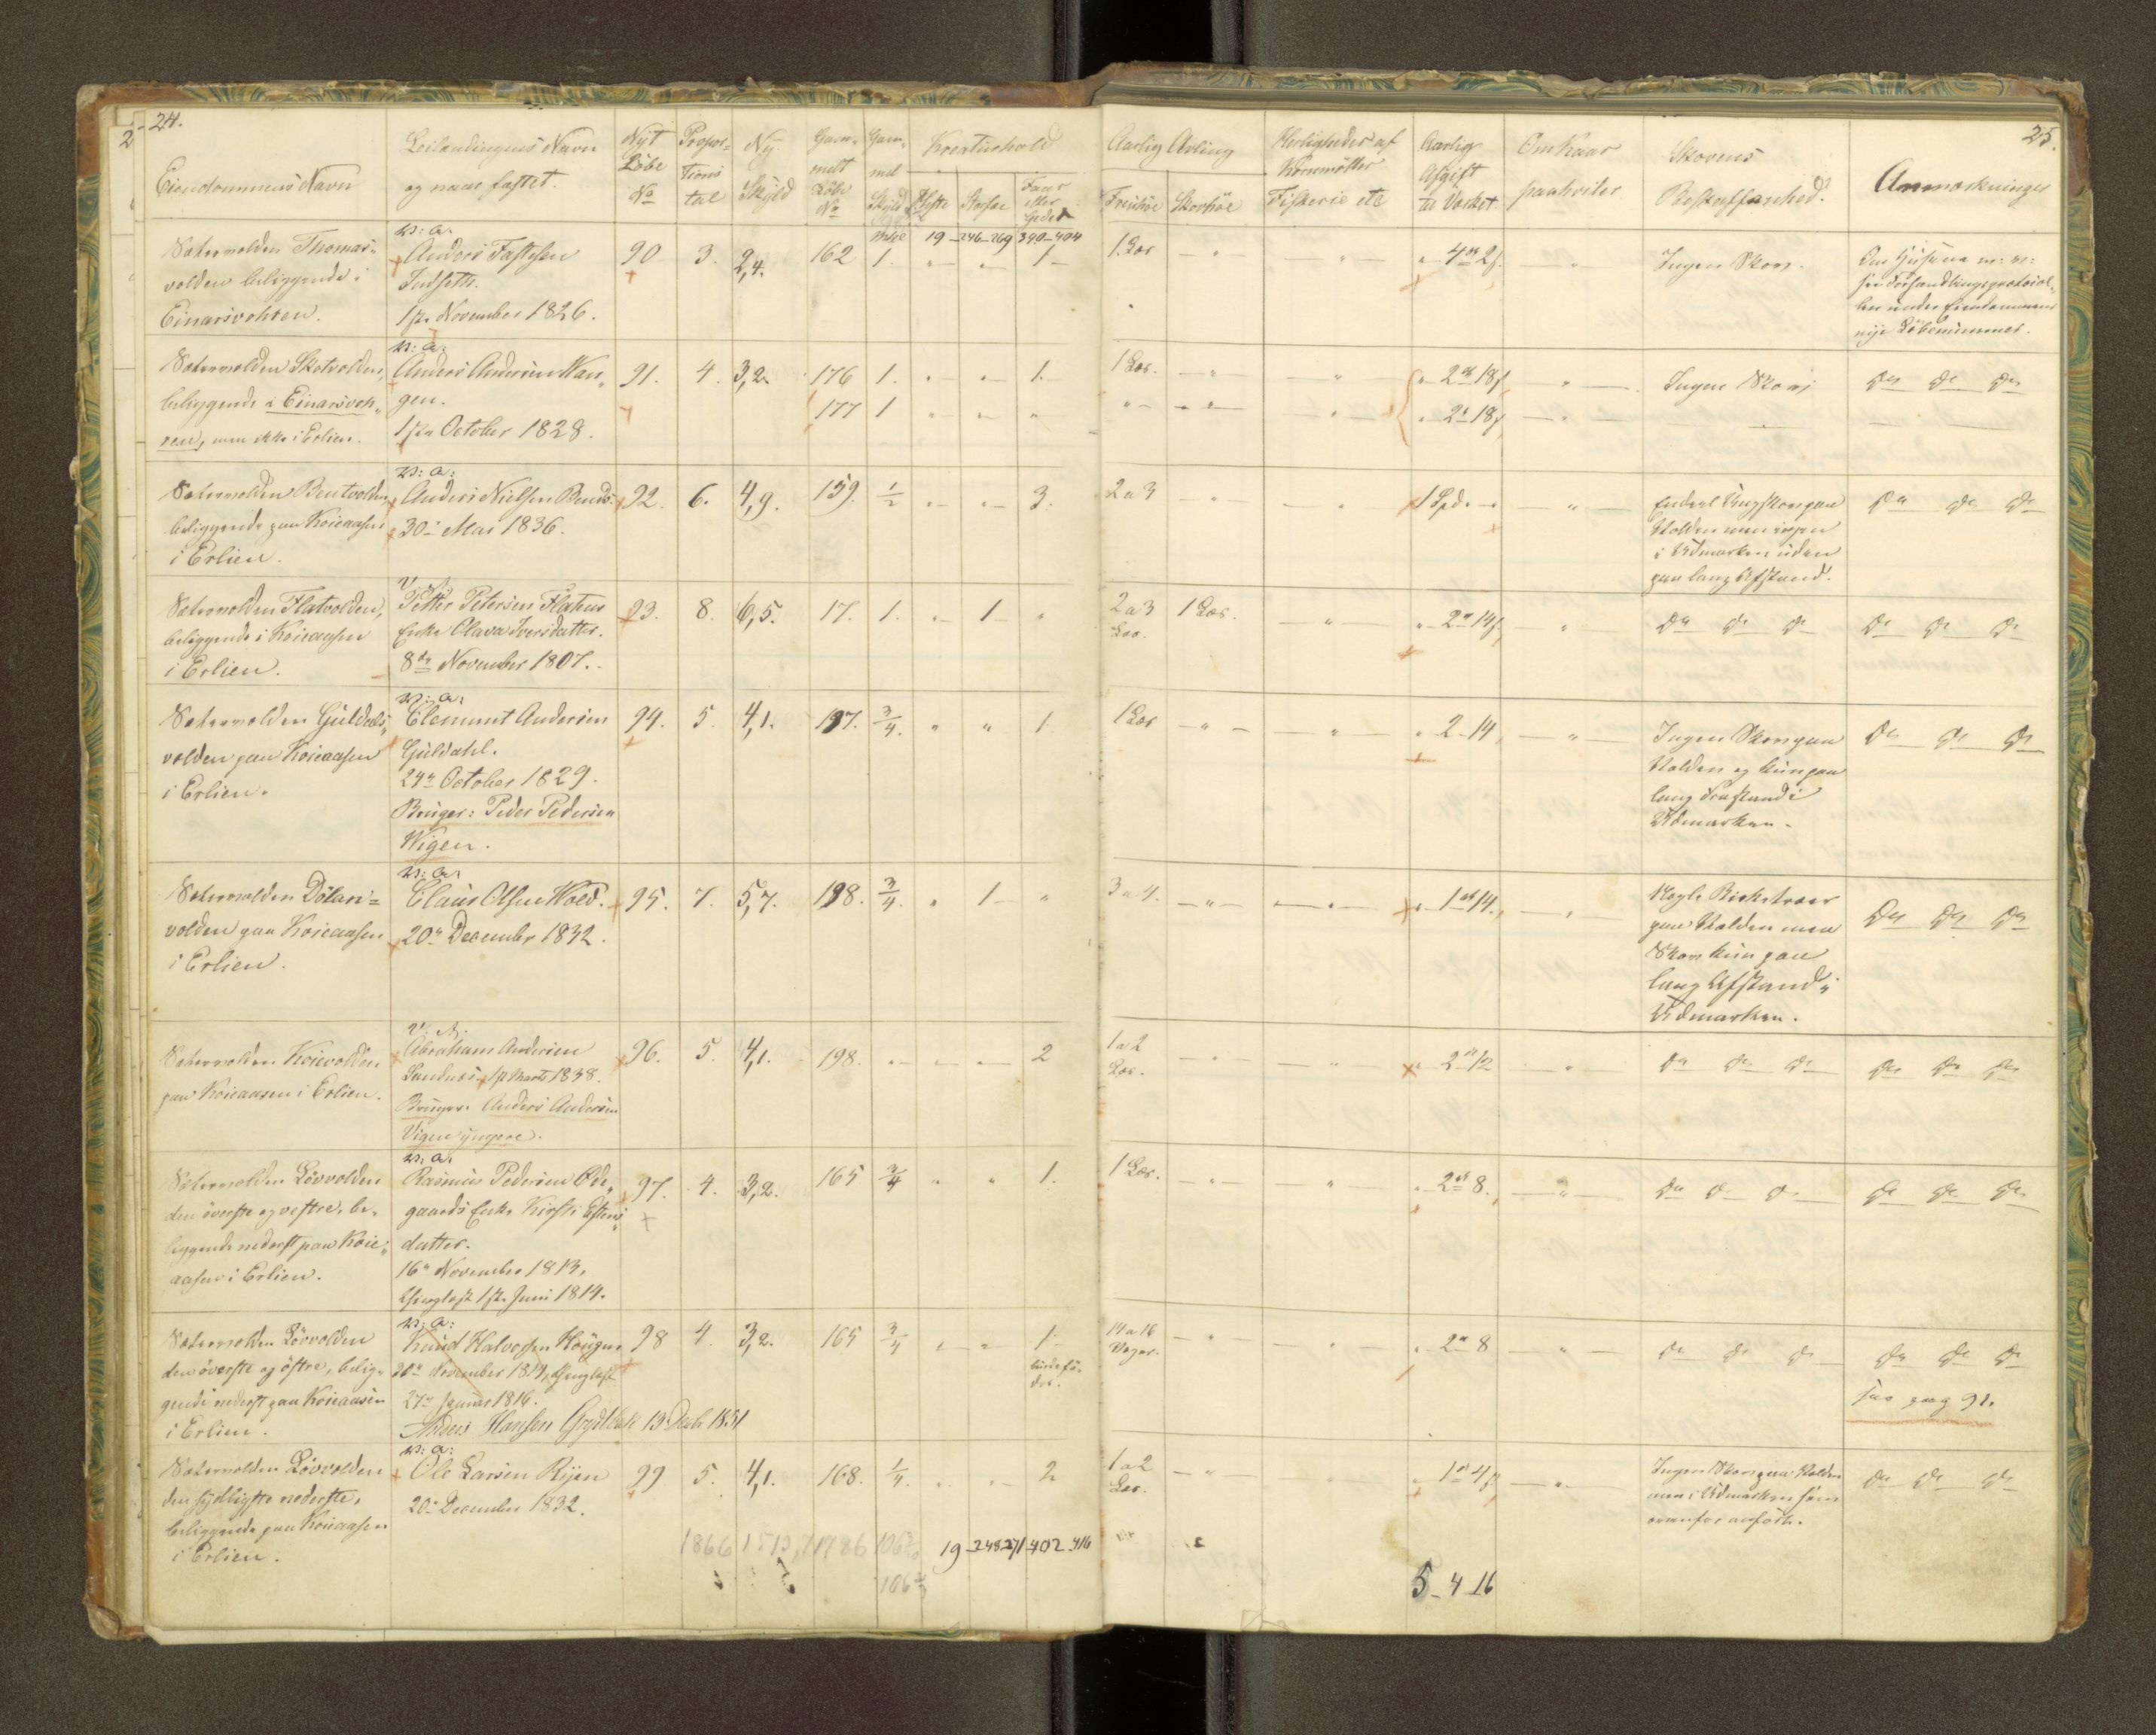 24.
Eiendommens Navn
Leilændingens Navn
og naar fæstet.
Nyt
Løbe
No
Propor-
tions
tal
Ny
Skyld
Gam-
melt
Løbe
No
Gam-
mel
Skyld
Mke
Kreaturhold
Heste
Storfæ
Faar
eller
Geder
19 - 246-269 390-404
Sætervolden Thomas-
volden beliggende i
Einarsvohlen.
v: a:
Anders Fastesen
Indseth.
1ste November 1826.
90
3.
2,4.
162
1.
1
Sætervolden Skotvolden,
beliggende i Einarsvoh-
len, men ikke i Erlien.
v: a:
Anders Andersen Wan-
gen.
1ste October 1828.
91.
4.
3,2.
176
1.
1.
177
1
Sætervolden Bentvolden
beliggende paa Koieaasen
i Erlien.
v: a:
Anders Nielsen Bends.
30- Mai 1836.
92.
6.
4,9.
159.
1/2
3.
Sætervolden Flatvolden,
beliggende i Koieaasen
i Erlien.
Petter Petersen Flatens
Enke Olava Iversdatter.
8de November 1807.
93.
8.
6,5.
17.
1.
1
Sætervolden Guldals-
volden paa Koieaasen
i Erlien.
v: a:
Clemmet Andersen
Guldahl.
24de October 1829.
Bruger: Peder Pedersen
Wigen.
94.
5.
4,1.
197.
3/4.
1.
Sætervolden Dølan-
volden paa Koieaasen
i Erlien.
v: a:
Claus Olsen Wold.
20de December 1832.
95.
7.
5,7.
198.
3/4.
1
Sætervolden Koievolden
paa Koieaasen i Erlien.
v. A.
Abraham Andersen
Sandnæs. 1st Marts 1838.
Bruger: Anders Andersen
Vigen yngere.
96.
5.
4,1.
198.
2
Sætervolden Løvvolden
den øverste og vestre, be-
liggende nederst paa Koie-
aasen i Erlien.
v: a:
Rasmus Pedersen Øde-
gaards Enke Kirsti Estens-
datter.
16de November 1813,
thinglæst 1ste Juni 1814.
97.
4.
3,2.
165
3/4
1.
Sætervolden Løvvolden
den øverste og østre, belig-
gende nederst paa Koieaasen
i Erlien.
v: a:
Knud Halvorsen Haugen
November 1814, thinglæst
27de Januar 1816.
Anders Hansen Grydbak 13 Decb 1851
98
4.
3,2.
165
3/4
1
Sætervolden Løvvolden
den sydligste nederste,
beliggende paa Koieaasen
i Erlien.
v: a:
Ole Larsen Ryen
20- December 1832.
99
5.
4,1.
168.
1/4.
2
1866
19 - 248-271-402-416
25.
Aarlig Avling
Frøehøe
Skovhøe
Herligheder af
Kornmøller
Fiskerie etc
Aarlig
Afgift
til Værket
Omkaar
paahviler
Skovens
Beskaffenhed.
Anmærkninger
1 Læs
4 2
Ingen Skov.
Om Husene m: v:
see Forhandlingsprotocol-
len under Eiendommens
nye Løbenummer.
1 Læs.
2 18
Ingen Skov
Do do do
2 18
2 a 3
1 Spd.
Endeel Ungskov paa
Volden men ingen
i Udmarken uden
paa lang Afstand.
Do do do
2 a 3
Læs.
1 Læs.
2 14
Do do do
Do do do
1 Læs
2 - 14
Ingen Skov paa
Volden og kun paa
lang Frastand i
Udmarken.
Do do do
3 a 4.
1 14.
Nogle Birketræer
paa Volden men
Skov kun paa
lang Afstand i
Udmarken.
Do do do
1 a 2
Læs.
2 12
Do do do
Do do do
1 Læs.
2 8.
Do do do
Do do do
14 a 16
Voger.
2 8
Do do do
Do do do
see pag 91.
1 a 2
Læs.
1 4
Ingen Skov paa Volden
men i Udmarken som
ovenfor anført.
Do do do
5 - 4 16